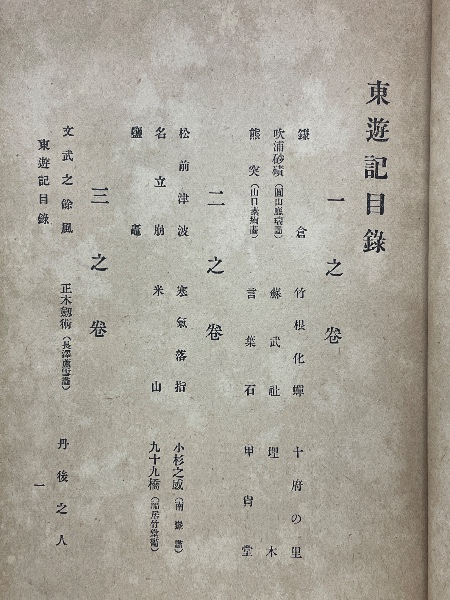 東遊記目錄
一之卷
鎌倉 竹根化蟬 十府の里
吹浦砂磧(圓山應瑞畫) 蘇武社 埋木
熊突(山口素絢畫) 言葉石 甲冑堂
二之卷
松前津波 寒氣落指 小杉之感(南嶽畫)
名立崩 米山 九十九橋
鹽竈
三之卷
文武之餘風 正木劔術(長澤蘆雪畫) 丹後之人
東遊記目錄 一